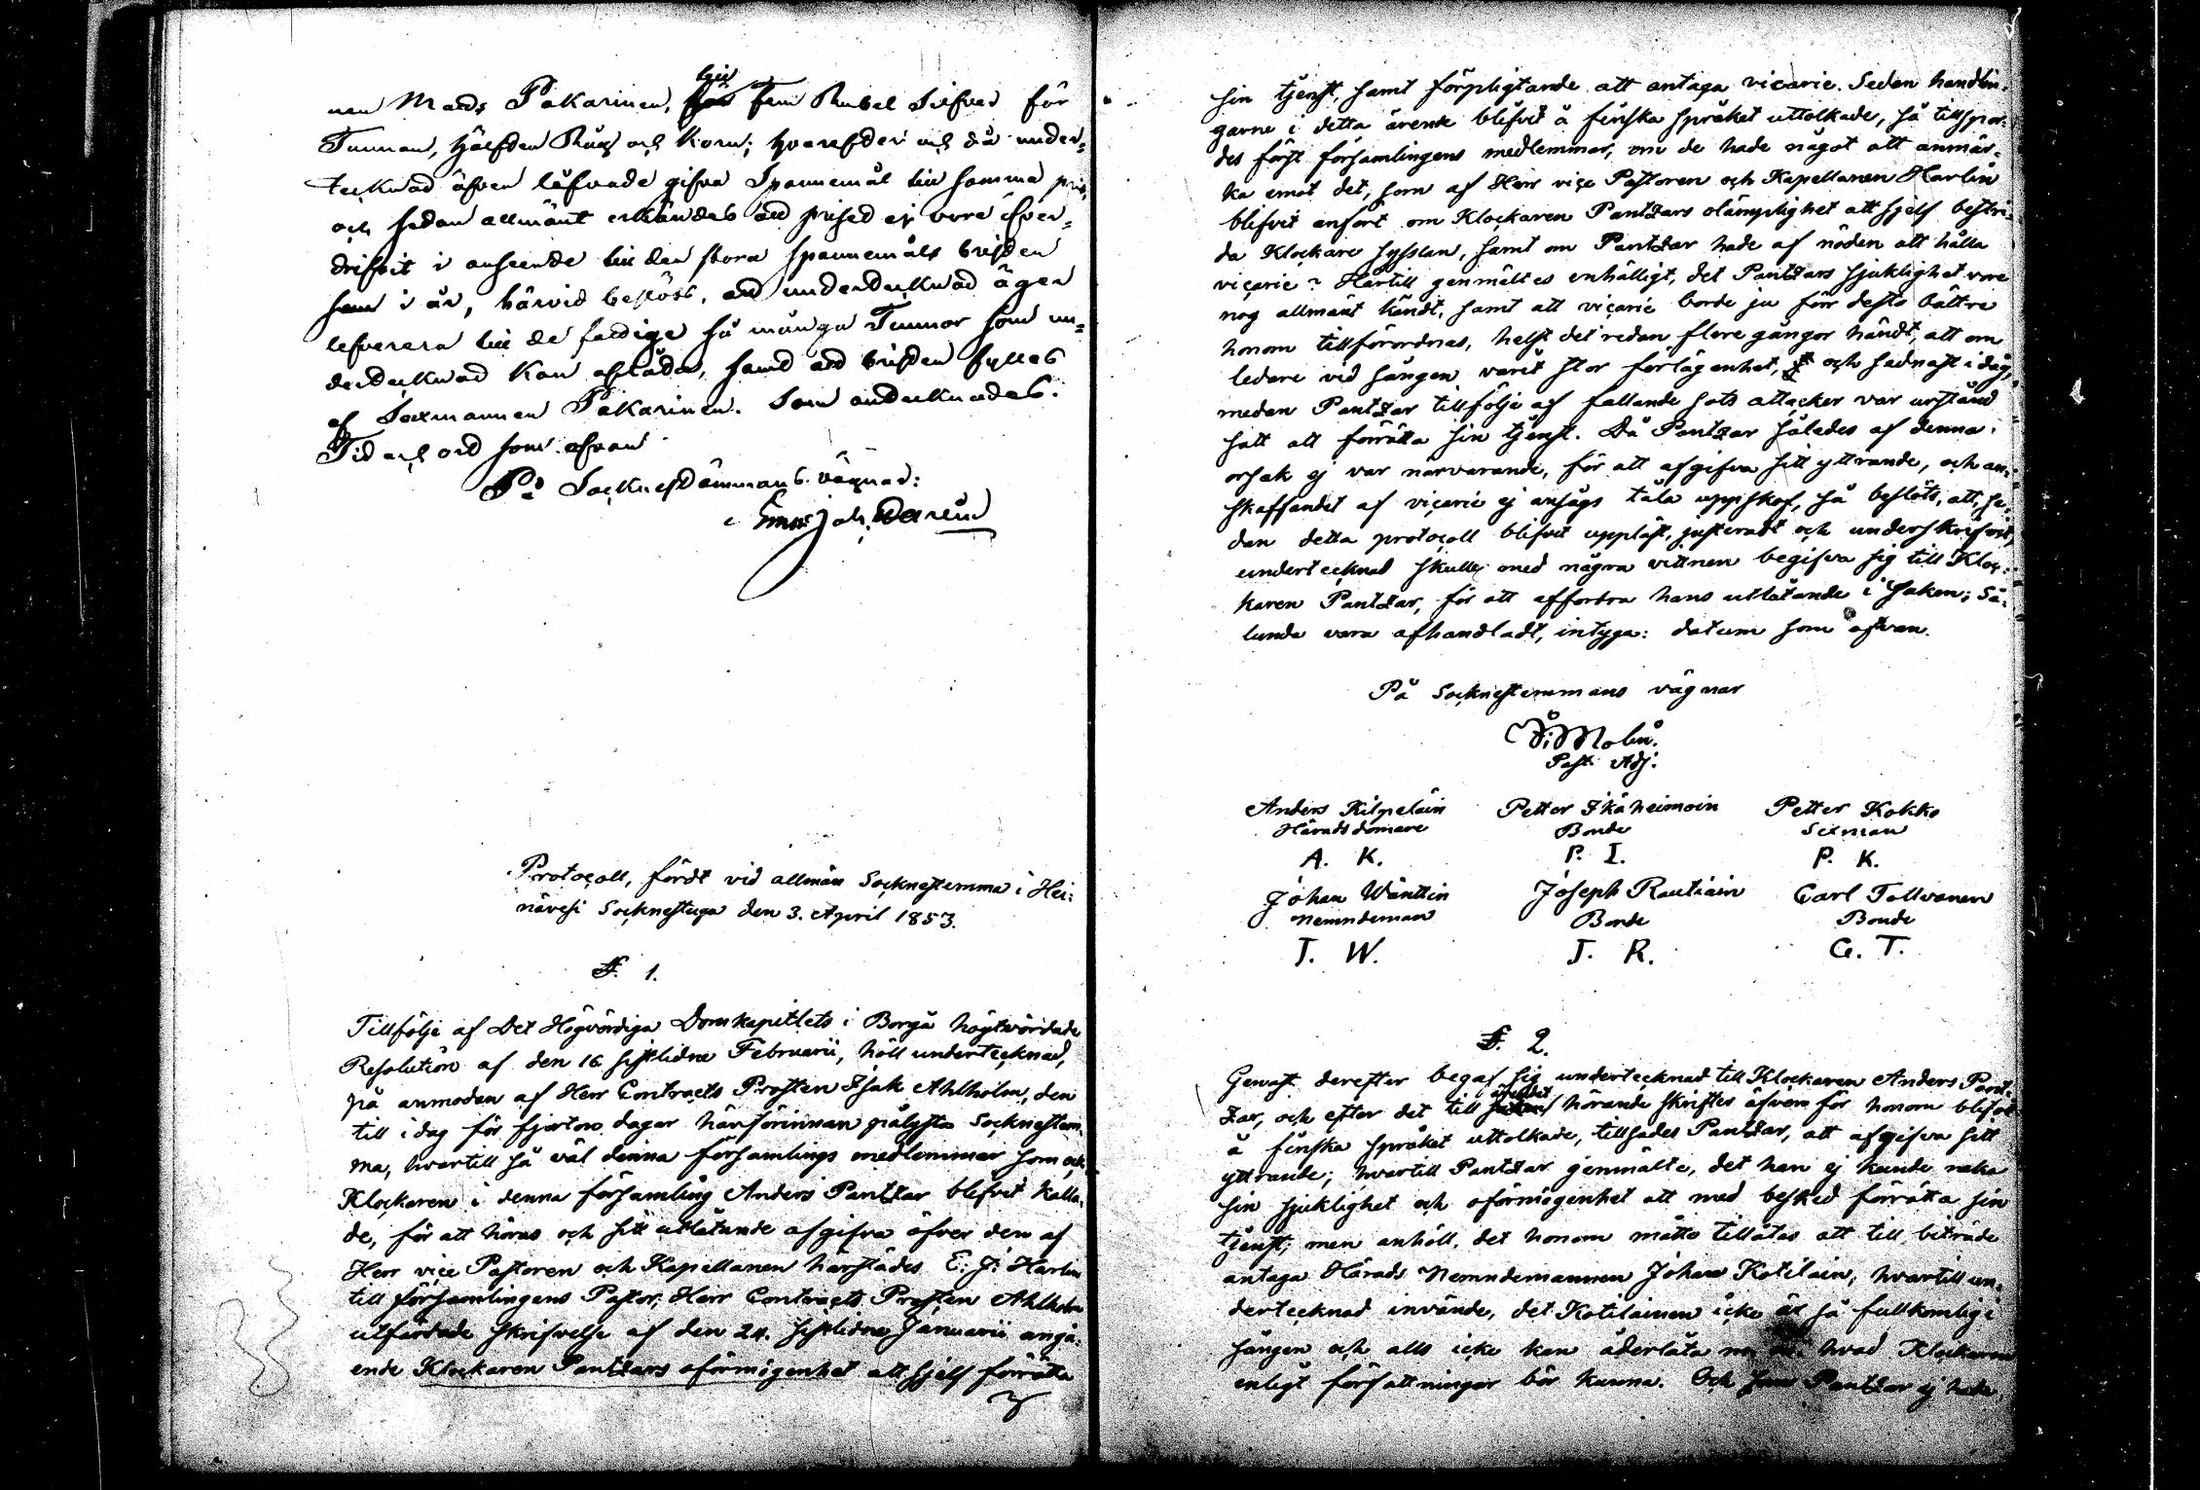 nen Mads Pakarinen, fem Rubel Silfver för
Tunnan, hälften Råg och Korn; hvarefter och då under-
tecknad äfven låfvade gifva Spannemål till samma pris,
och sedan allmänt erkändes att priset ej vore öfver-
drifvit i anseende till den stora spannemåls bristen
som i år, härvid beslöts, att undertecknad äger
leverera till de fattige så många Tunnor som un-
dertecknad kan aflåta, samt att bristen fylles
af Sexmannen Pakarinen. Som antecknades.
Tid och ort som ofvan
På Socknestämmans vägnar:
Protocoll, fördt vid allmän Socknestemma i Hei-
nävesi Socknestuga den 3. April 1853.
§. 1.
Tillfölje af Det Högvördiga Domkapitlets i Borgå högtvördade
Resolution af den 16 sistlidne Februarii, höll undertecknad,
på anmodan af Herr Contracts Prosten Isak Ahlholm, den
till i dag för fjorton dagar härförinnan pålysta Socknestem-
ma, hvartill så väl denna församlings medlemmar som och
Klockaren i denna församling Anders Pantzar blifvit kalla-
de, för att höras och sitt utlåtande afgifva öfver den af
Herr vice Pastoren och Kapellanen härstädes E. J. Harlin
till församlingens Pastor, Herr Contracts Prosten Ahlholm
utfärdade skrifvelse af den 24. sistlidne Januarii angå-
ende Klockaren Pantzars oförmögenhet att sjelf förrätta
sin tjenst, samt förpligtande att antaga vicarie. Sedan handlin-
garne i detta ärende blifvit å finska språket uttolkade, så tillspor-
des först församlingens medlemmar, om de hade något att anmär-
ka emot det, som af Herr vice Pastoren och Kapellanen Harlin
blifvit anfört om Klockaren Pantzars olämplighet att sjelf bestri-
da Klockare sysslan, samt om Pantzar hade af nöden att hålla
vicarie? Härtill genmältes enhälligt, det Pantzars sjuklighet vore
nog allmänt kändt, samt att vicarie borde ju förr desto bättre
honom tillförordnas, helst det redan flere gångor händt, att om
ledare vid sången varit stor förlägenhet, och sednast i dag,
medan Pantzar tillfölje af fallande sots attacker var urståndd
satt att förrätta sin tjenst. Då Pantzar således af denna
orsak ej var närvarande, för att afgifva sitt yttrande, och an-
skaffandet af vicarie ej ansågs tåla uppskof, så beslöts, att, se-
dan detta protocoll blifvit uppläst, justeradt och underskrifvit,
undertecknad skulle med några vittnen begifva sig till Kloc-
karen Pantzar, för att affordra hans utlåtande i saken; Så-
lunda vara afhandladt, intyga: datum som ofvan.
På Socknestemmans vägnar
Molin.
Past. Adj.
Anders Kilpeläin Petter Ikäheimoin Petter Kokko
Häradsdomare Bonde Sexman
A. K. P. I. P. K.
Johan Wänttin Joseph Rautiain Carl Tollvanen
Nemndeman Bonde Bonde
J. W. J. R. C. T.
§. 2.
Genast derefter begaf sig undertecknad till Klockaren Anders Pant-
zar, och efter det till ärendet hörande skrifter äfven för honom blifvit
å finska språket uttolkade, tillsades Pantzar, att afgifva sitt
yttrande; hvartill Pantzar genmälte, det han ej kunde neka
sin sjuklighet och oförmögenhet att med besked förrätta sin
tjenst; men anhöll, det honom måtte tillåtas att till biträde
antaga Härads Nemndemannen Johan Kotilain; hvartill un-
dertecknad invände, det Kotilainen icke är så fullkomlig i
sången och alls icke kan åderlåta hvad Klockaren
enligt författningar bör kunna. Och Pantzar ej hade